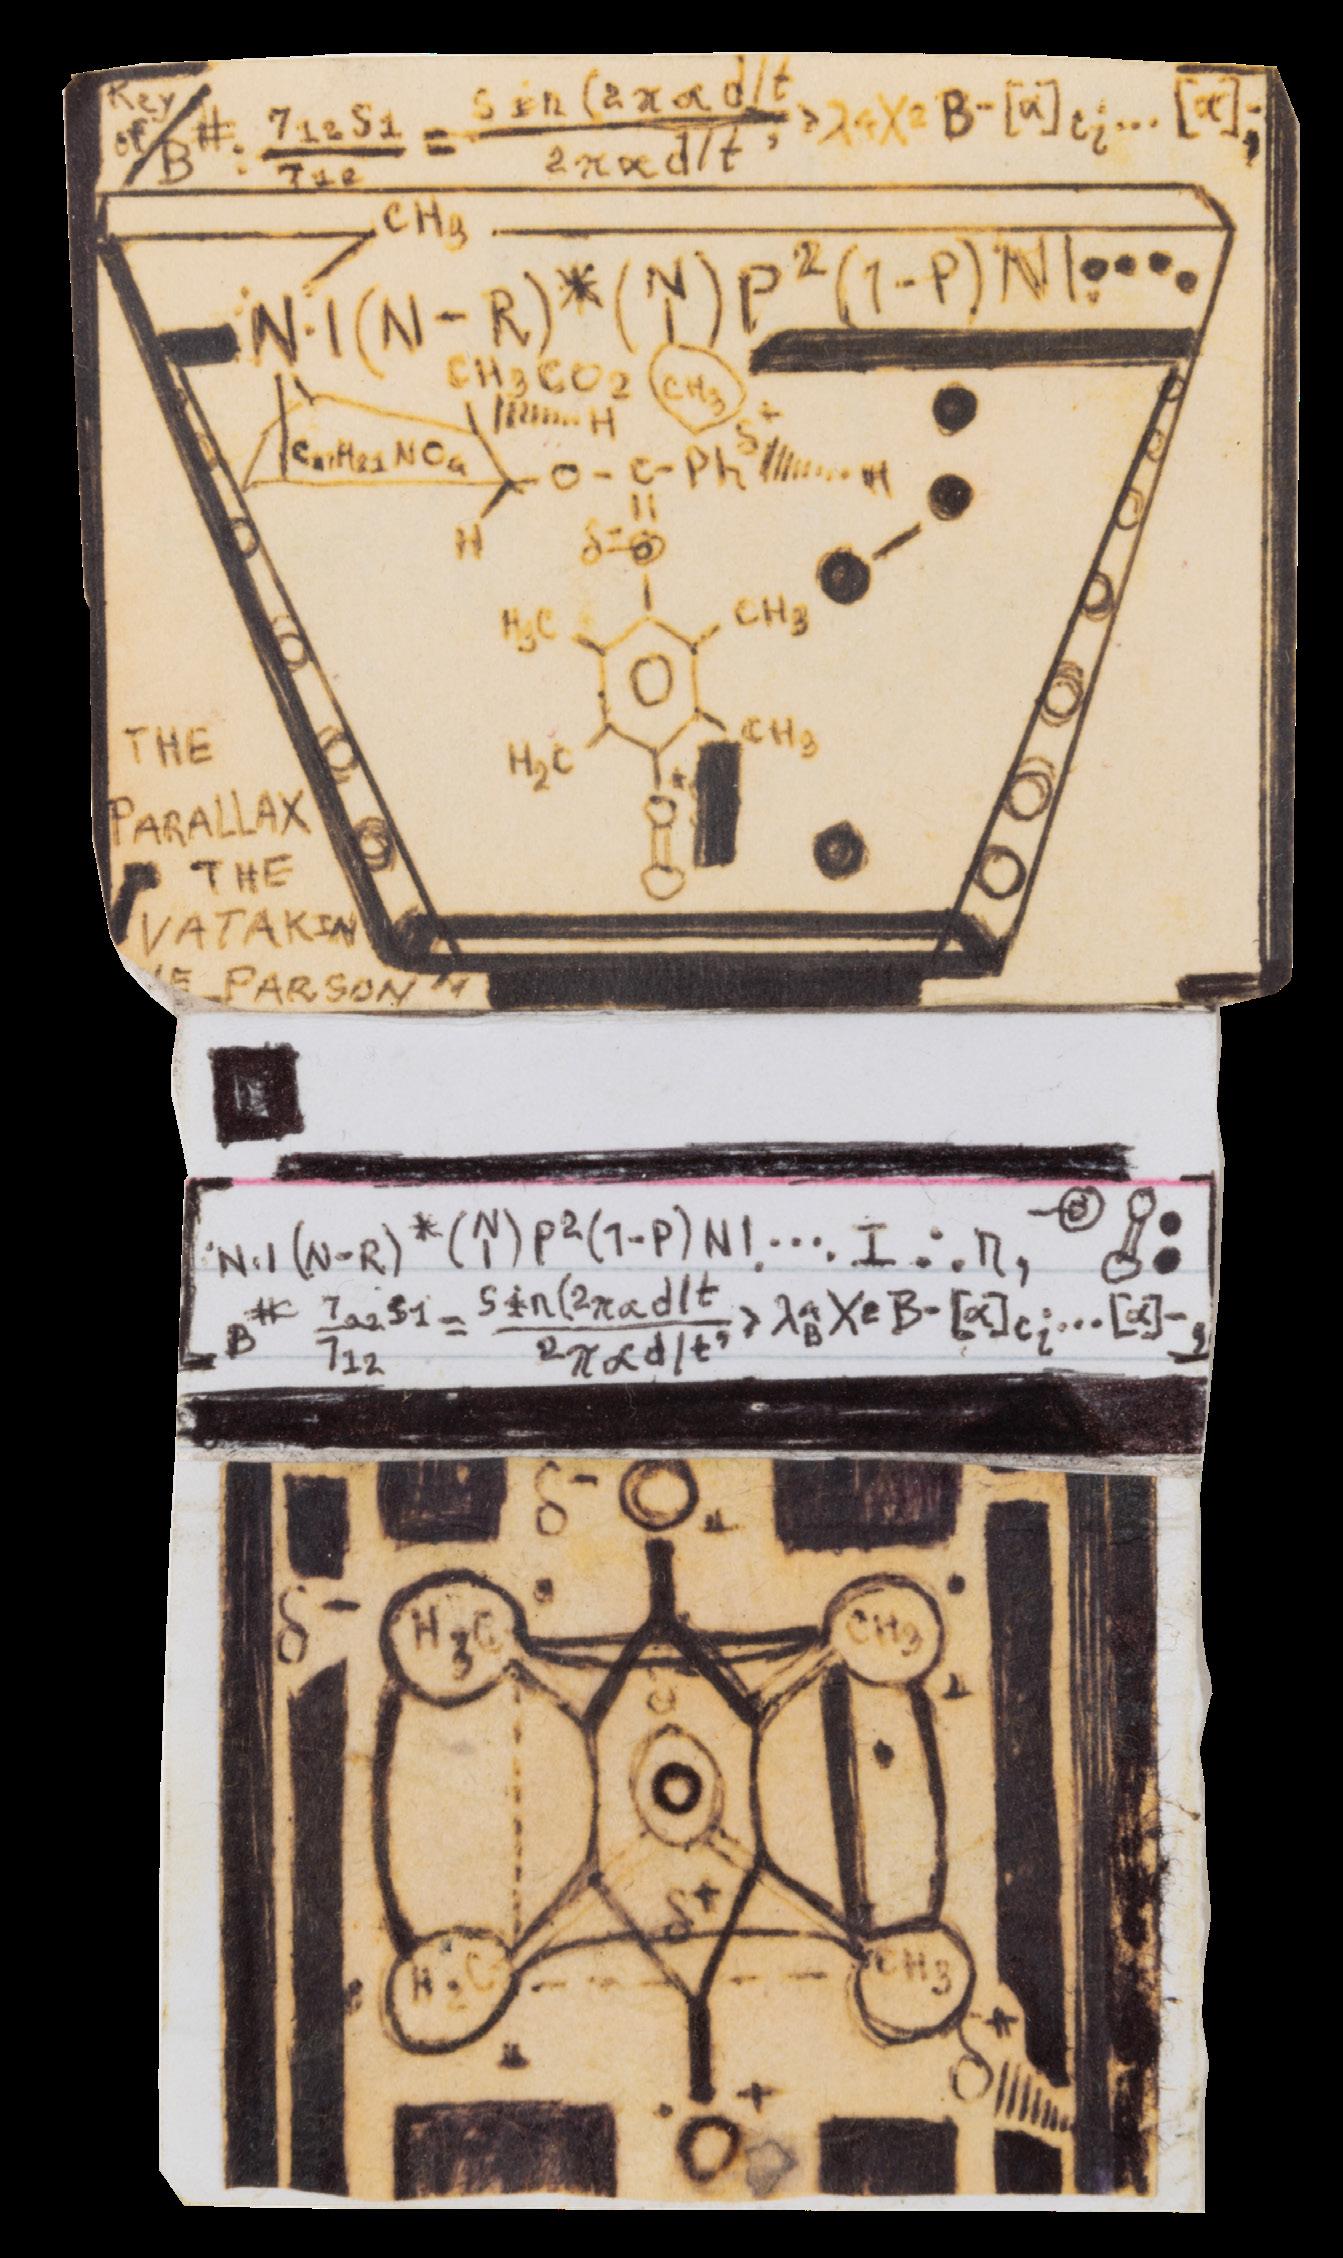 Key
of/B #: 7₁₂S1/7₁₂ = sin(2παd/t/2παd/t, > λ4X2 B-[α]ti... [α]-,
CH3
N·1(N-R)*(N)P²(1-P)N!....
CH3CO2
CH3
H
δ+
C17H21NO4
O-C-Ph
H
H
δ-
H3C
CH3
O
H2C
CH3
THE
PARALLAX
THE
VATAKIN
PARSON"
N·1(N-R)*(N)P²(1-P)N!.... I ∴ n,
B# 7₁₂S1/7₁₂ = sin(2παd/t/2παd/t, > λ4BX2 B-[α]ti...[α]-,
δ-
δ-
H3C
CH3
δ+
H2C
CH3
+